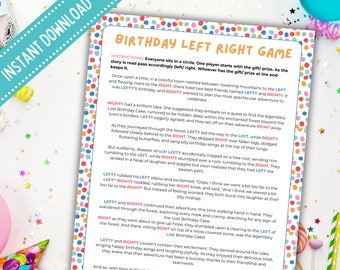 INSTANT DOWNLOAD
BIRTHDAY LEFT RIGHT GAME
INSTRUCTIONS: Everyone sits in a circle. One player starts with the gift/ prize. As the
story is read pass accordingly (left/ right). Whoever has the gift/ prize at the end
keeps it.
Once upon a time, in a colorful town nestled between towering mountains to the LEFT
and flowing rivers to the RIGHT, there lived two best friends named LEFTY and RIGHTY. It
was LEFTY'S birthday, and RIGHTY wanted to plan the most spectacular adventure to
celebrate.
RIGHTY had a brilliant idea. She suggested they embark on a quest to find the legendary
Lost Birthday Cake, rumored to be hidden deep within the enchanted forest beyond the
town's borders. LEFTY eagerly agreed, and they set off on their adventure
As they journeyed through the forest, LEFTY led the way to the LEFT, while RIGHTY
followed closely behind to the RIGHT. They skipped over fallen logs, dodged
fluttering butterflies, and sang silly birthday songs at the top of their lungs.
But suddenly, disaster struck! LEFTY accidentally tripped over a tree root, sending him
tumbling to the LEFT, while RIGHTY stumbled over a rock, tumbling to the RIGHT. They
landed in a heap of laughter and giggles but soon realized that they had LEFT the
beaten path.
LEFTY rubbed his LEFT elbow and exclaimed, "Oops, I think we went a bit too far to the
LEFT!" RIGHTY nodded, rubbing her RIGHT knee, and said, "And I think we veered a bit
too far to the RIGHT!" But instead of feeling worried, they both burst into laughter at their
silly mishap.
LEFTY and RIGHTY continued their adventure, this time walking hand in hand. They
wandered through the forest, exploring every nook and cranny, searching for any sign of
the Lost Birthday Cake.
RIGHT as they were about to give up hope, they stumbled upon a clearing to the LEFT of
the forest. And there, sitting RIGHT on top of a moss-covered stone, was the legendary
Lost Birthday Cake!
LEFTY and RIGHTY couldn't contain their excitement. They danced around the cake,
singing happy birthday songs and laughing joyfully. As they enjoyed their delicious treat,
they knew that their adventure had been a success, thanks to their friendship and
teamwork.